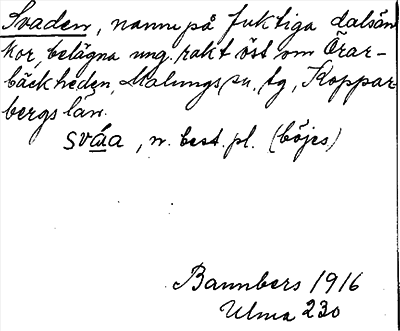 Svaden, namn på fuktiga dalsän
kor, belägna ung. rakt öst om Örar-
bäckheden, Malungs sn, tg, Koppar-
bergs län.
svåa, n. best. pl. (böjes)
Bannbers 1916
Ulma 230